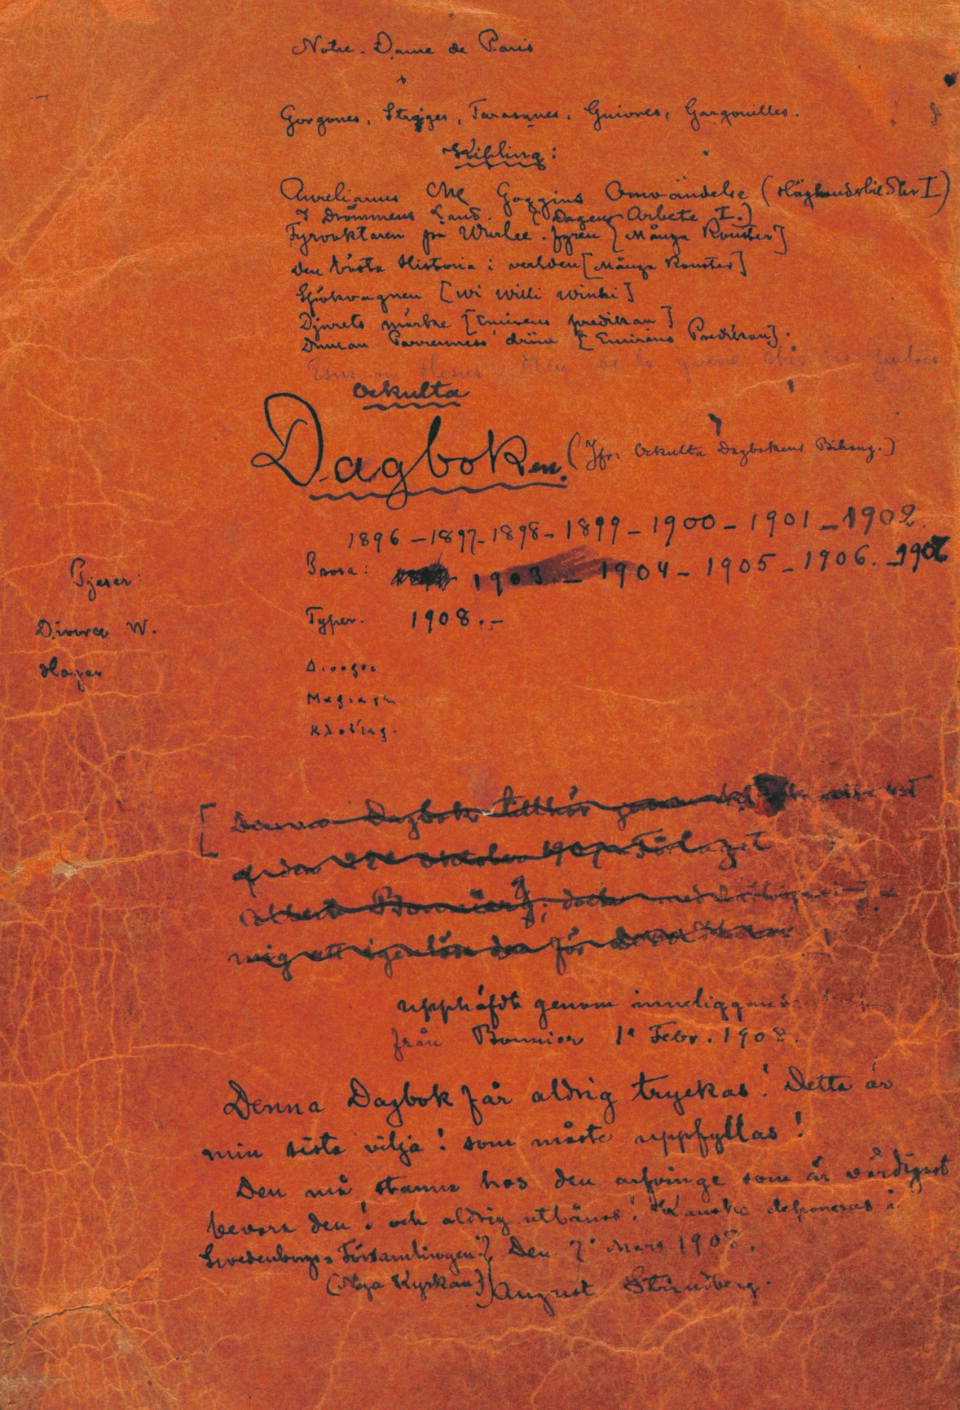 Notre-Dame de Paris
Gorgones, Stryges, Tarasques, Guivres, Gargouilles.
Kipling:
Aurelianus Mc Goggins Omvändelse (Höglandsbilder I)
I Drömmens Land. { Dagens Arbete I.}
Fyrvaktaren på Wurlee-fyren [Många Konster]
Den bästa Historia i verlden [Många Konster]
Sjökvagnen [Wi Willi Winki]
Djurets märke [Emirens predikan]
Duncan Parrenness' [Emirens Predikan].
Esus
Ockulta
Dagboken. (Jfr: Ockulta Dagbokens Bihang.)
1896 – 1897 – 1898 – 1899 – 1900 – 1901 – 1902.
1903. – 1904 – 1905 – 1906. – 1907
Pjeser:
Typer. 1908. –
Divina W.
Hagar
[Denna Dagbok tillhör
sedan oktober 1907 Förlaget
Albert Bonnier, dock
mig att igenlösa den för
upphäfdt genom inneliggande
från Bonnier 1a Febr. 1908.
Denna Dagbok får aldrig tryckas! Detta är
min sista vilja! som måste uppfyllas!
Den må stanna hos den arfvinge som är värdigast
bevara den! och aldrig utlånas! Kanske deponeras i
Swedenborgs Församlingen?, Den 7e Mars 1908.
(Nya Kyrkan) August Strindberg.